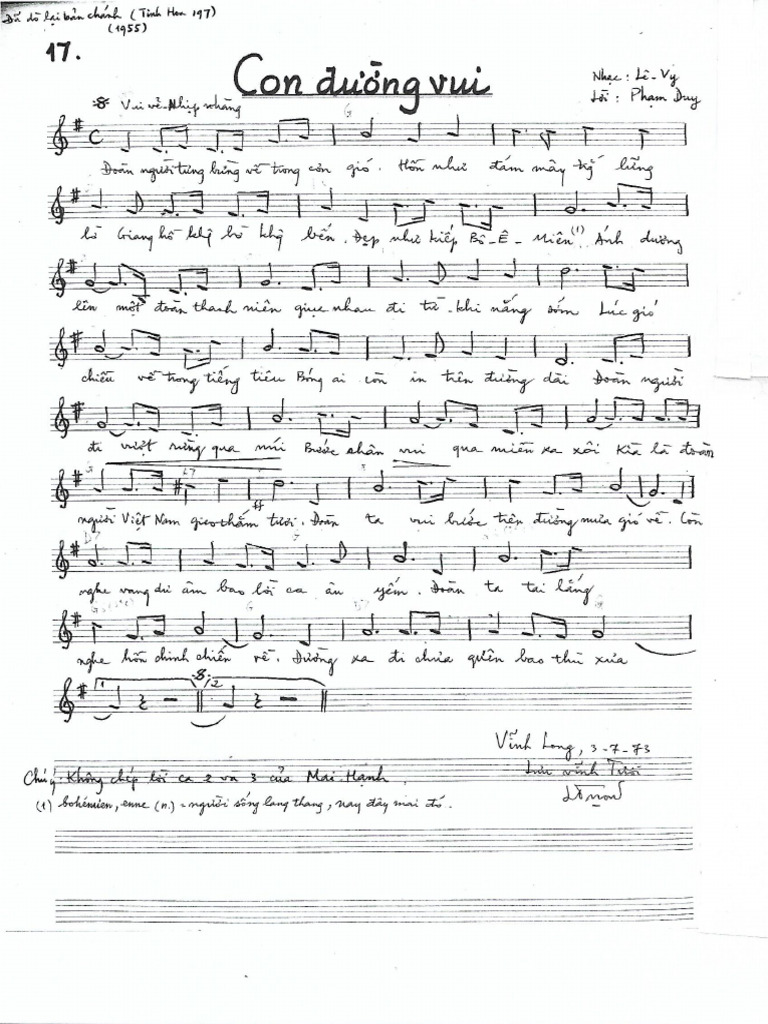 Đã dò lại bản chánh (Tinh Hoa 197)
(1955)
17.
Con đường vui
Nhạc: Lê-Vy
Lời: Phạm Duy
Vui vẻ-Nhịp nhàng
G
C
Đoàn người tưng bừng về trong cơn gió. Hồn như đám mây kỳ lững
lờ Giang hồ không hồ không bến. Đẹp như kiếp Bô-Ê-Miên (1) Ánh dương
lên một đoàn thanh niên giục nhau đi từ khi nắng sớm Lúc gió
chiều về trong tiếng tiêu Bóng ai còn in trên đường dài Đoàn người
đi vượt rừng qua núi Bước chân vui qua miền xa xôi Kìa là đoàn
người Việt Nam gieo thắm tươi. Đoàn ta vui bước trên đường mưa gió về. Còn
ff
D7
nghe vang dư âm bao lời ca âu yếm. Đoàn ta tai lắng
nghe hồn chinh chiến về. Đường xa đi chưa quên bao thù xưa
1 2
Vĩnh Long, 3-7-73
Lưu Vĩnh Tươi
Chú ý: Không chép lời ca 2 và 3 của Mai Hạnh.
(1) bohémien, enne (n.) = người sống lang thang, nay đây mai đó.